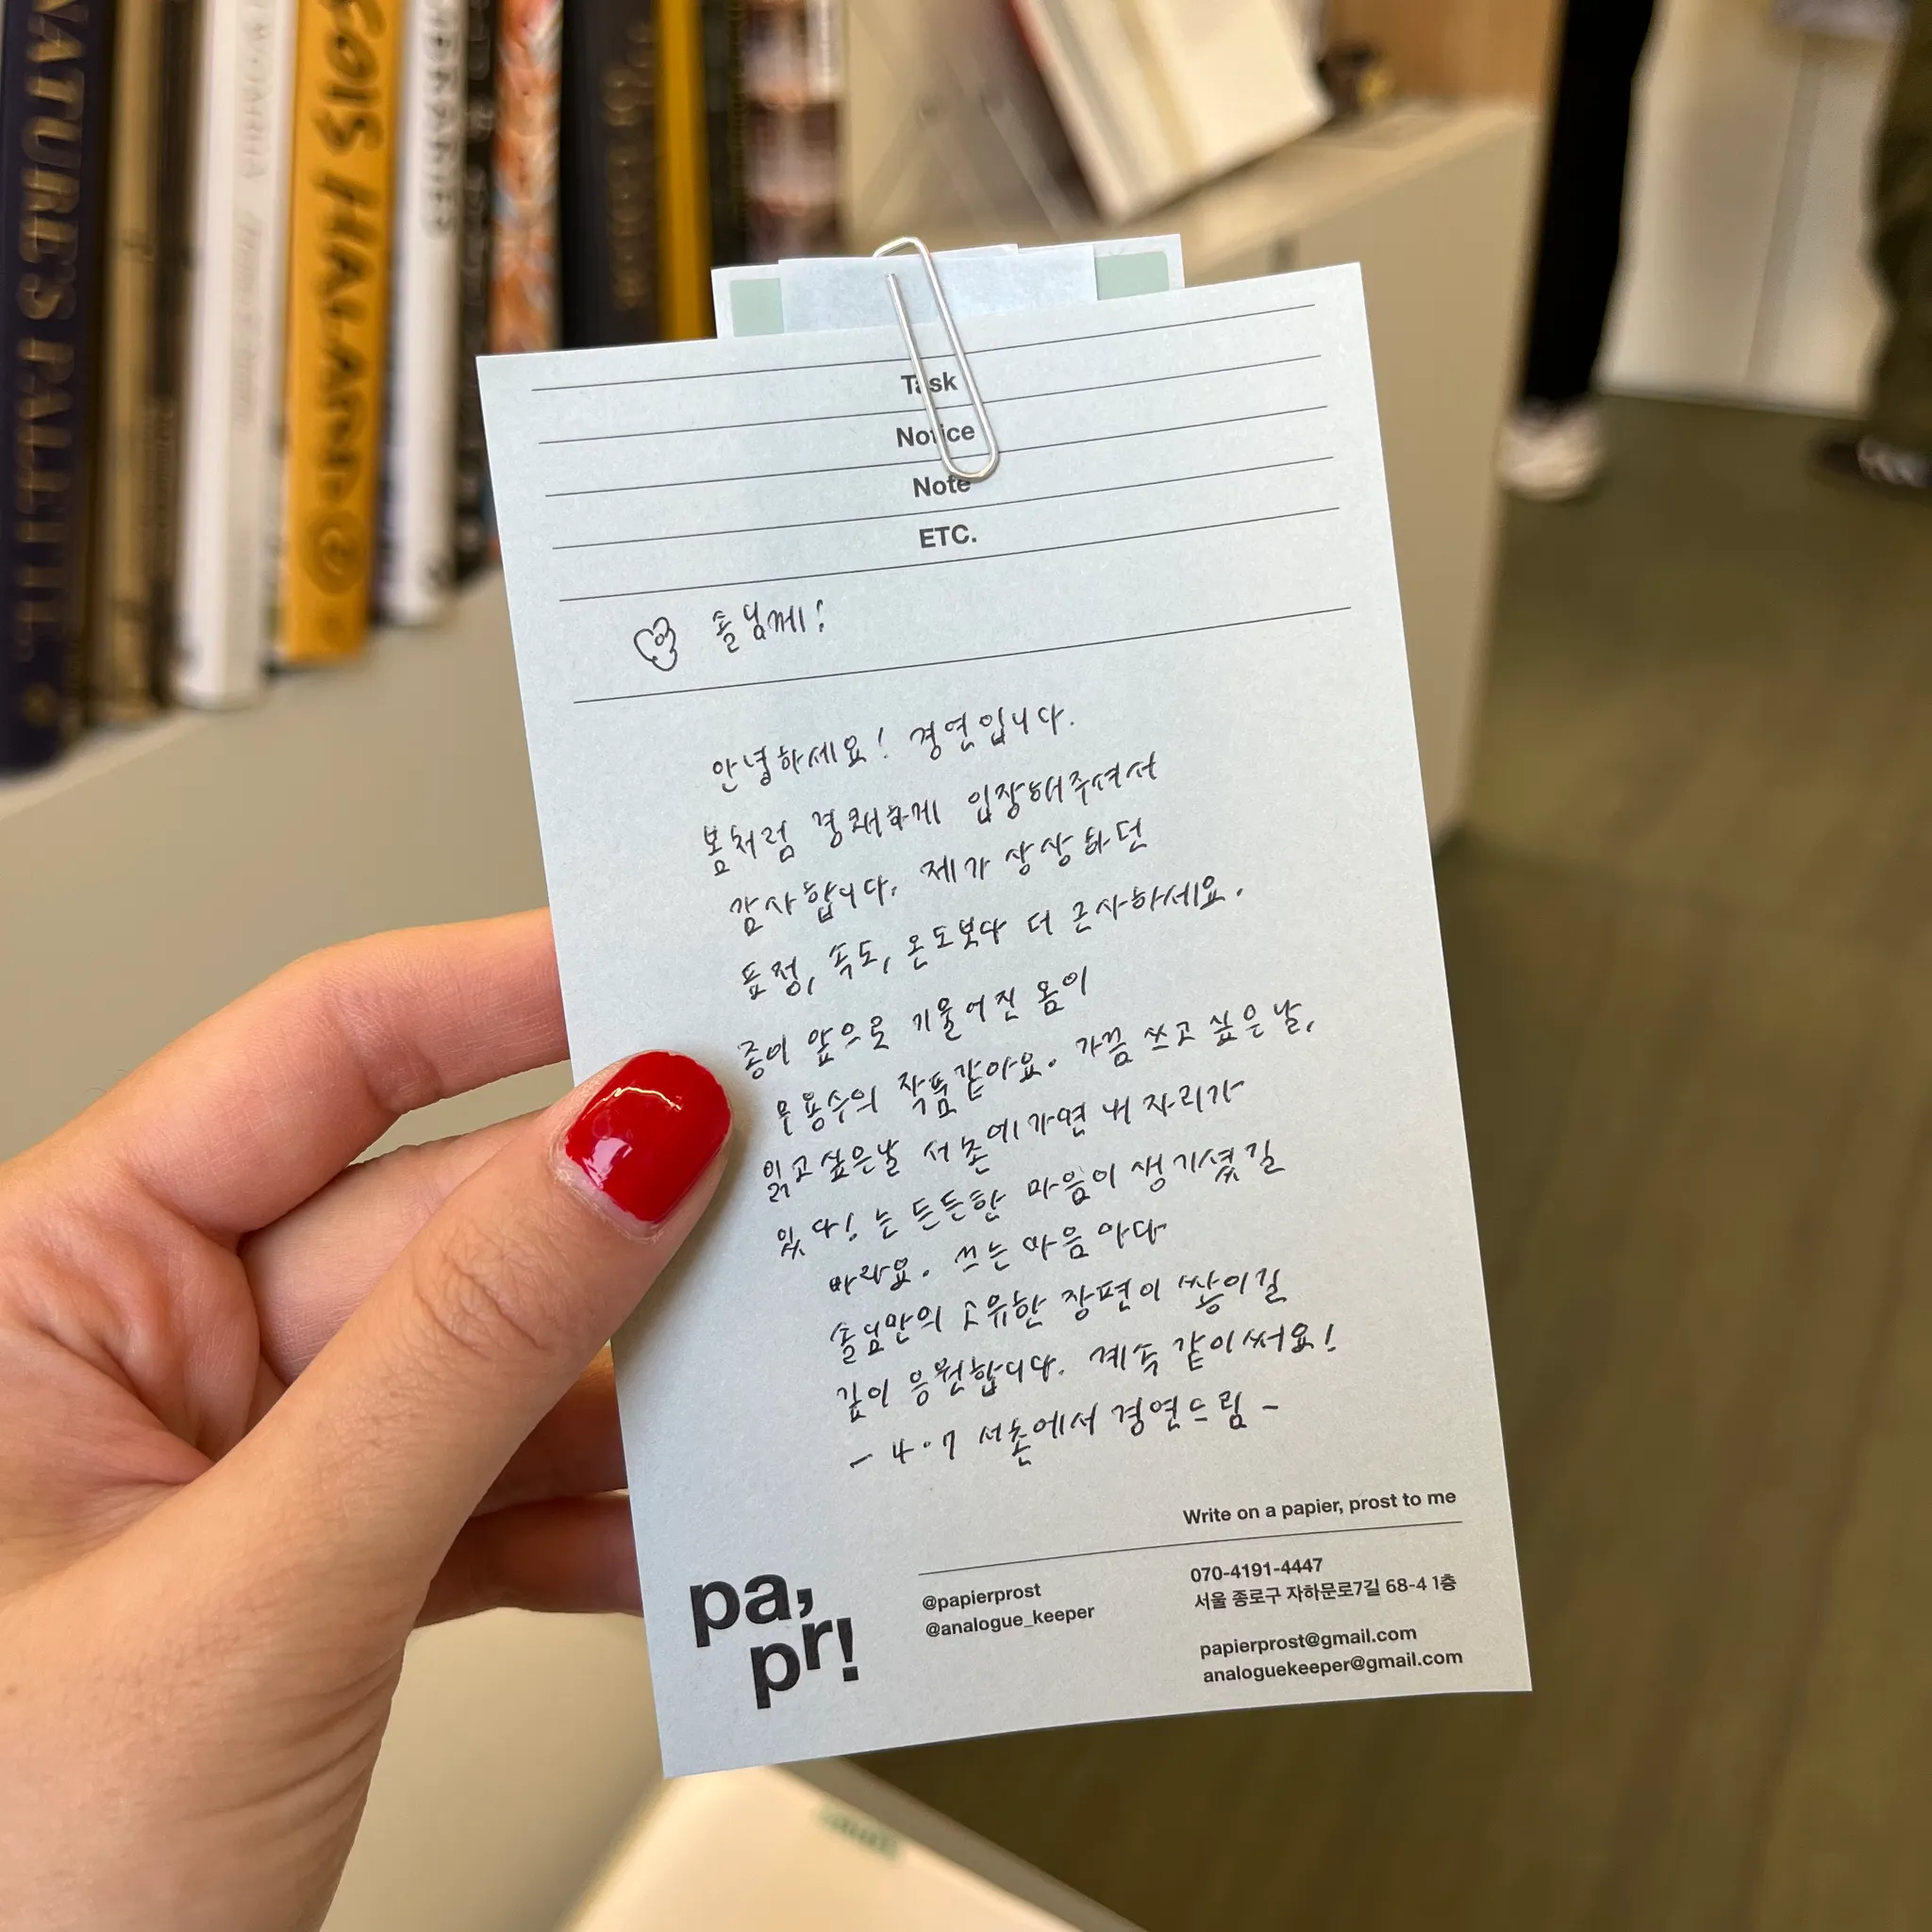 NATURE'S PALETTE
Task
Notice
Note
ETC.
솔님께!
안녕하세요! 경연입니다.
봄처럼 경쾌하게 입장해주셔서
감사합니다. 제가 상상하던
표정, 속도, 온도보다 더 근사하세요.
종이 앞으로 기울어진 몸이
무용수의 작품같아요. 가끔 쓰고 싶은 날,
읽고싶은날 서촌에가면 내 자리가
있다! 는 든든한 마음이 생기셨길
바라요. 쓰는 마음 마다
솔님만의 고유한 장편이 쌓이길
깊이 응원합니다. 계속 같이써요!
- 4.7 서촌에서 경연드림 -
Write on a papier, prost to me
pa,
pr!
@papierprost
@analogue_keeper
070-4191-4447
서울 종로구 자하문로7길 68-4 1층
papierprost@gmail.com
analoguekeeper@gmail.com